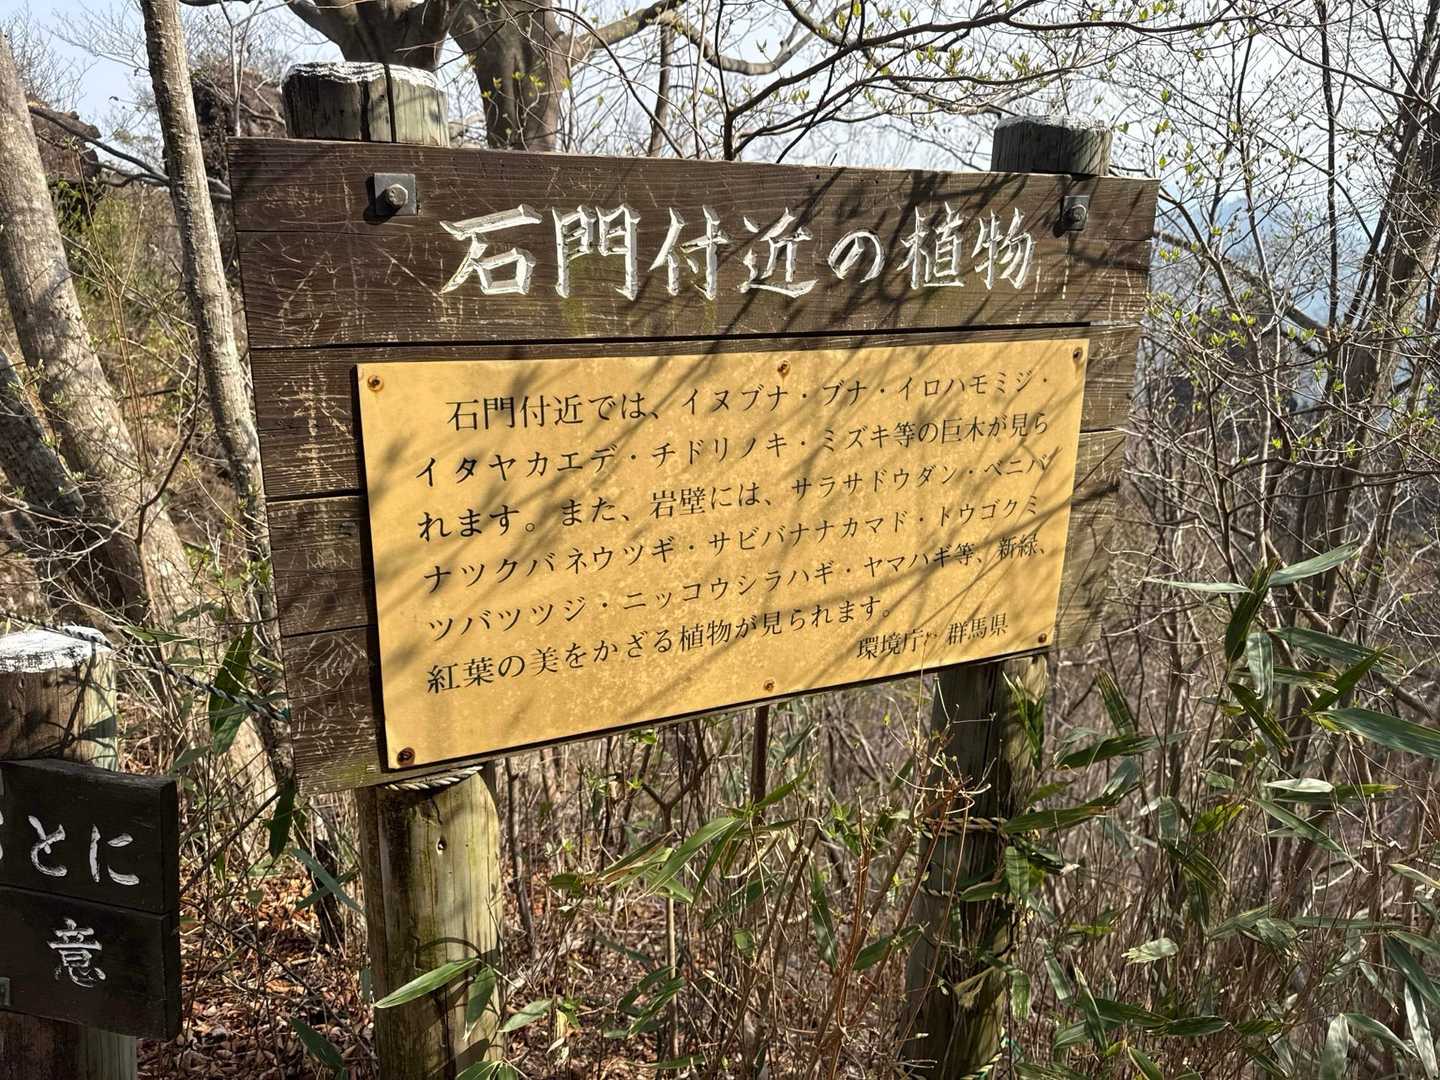 石門付近の植物
石門付近では、イヌブナ・ブナ・イロハモミジ・
イタヤカエデ・チドリノキ・ミズキ等の巨木が見ら
れます。また、岩壁には、サラサドウダン・ベニバ
ナツクバネウツギ・サビバナナカマド・トウゴクミ
ツバツツジ・ニッコウシラハギ・ヤマハギ等、新緑、
紅葉の美をかざる植物が見られます。
環境庁・群馬県
とに
意